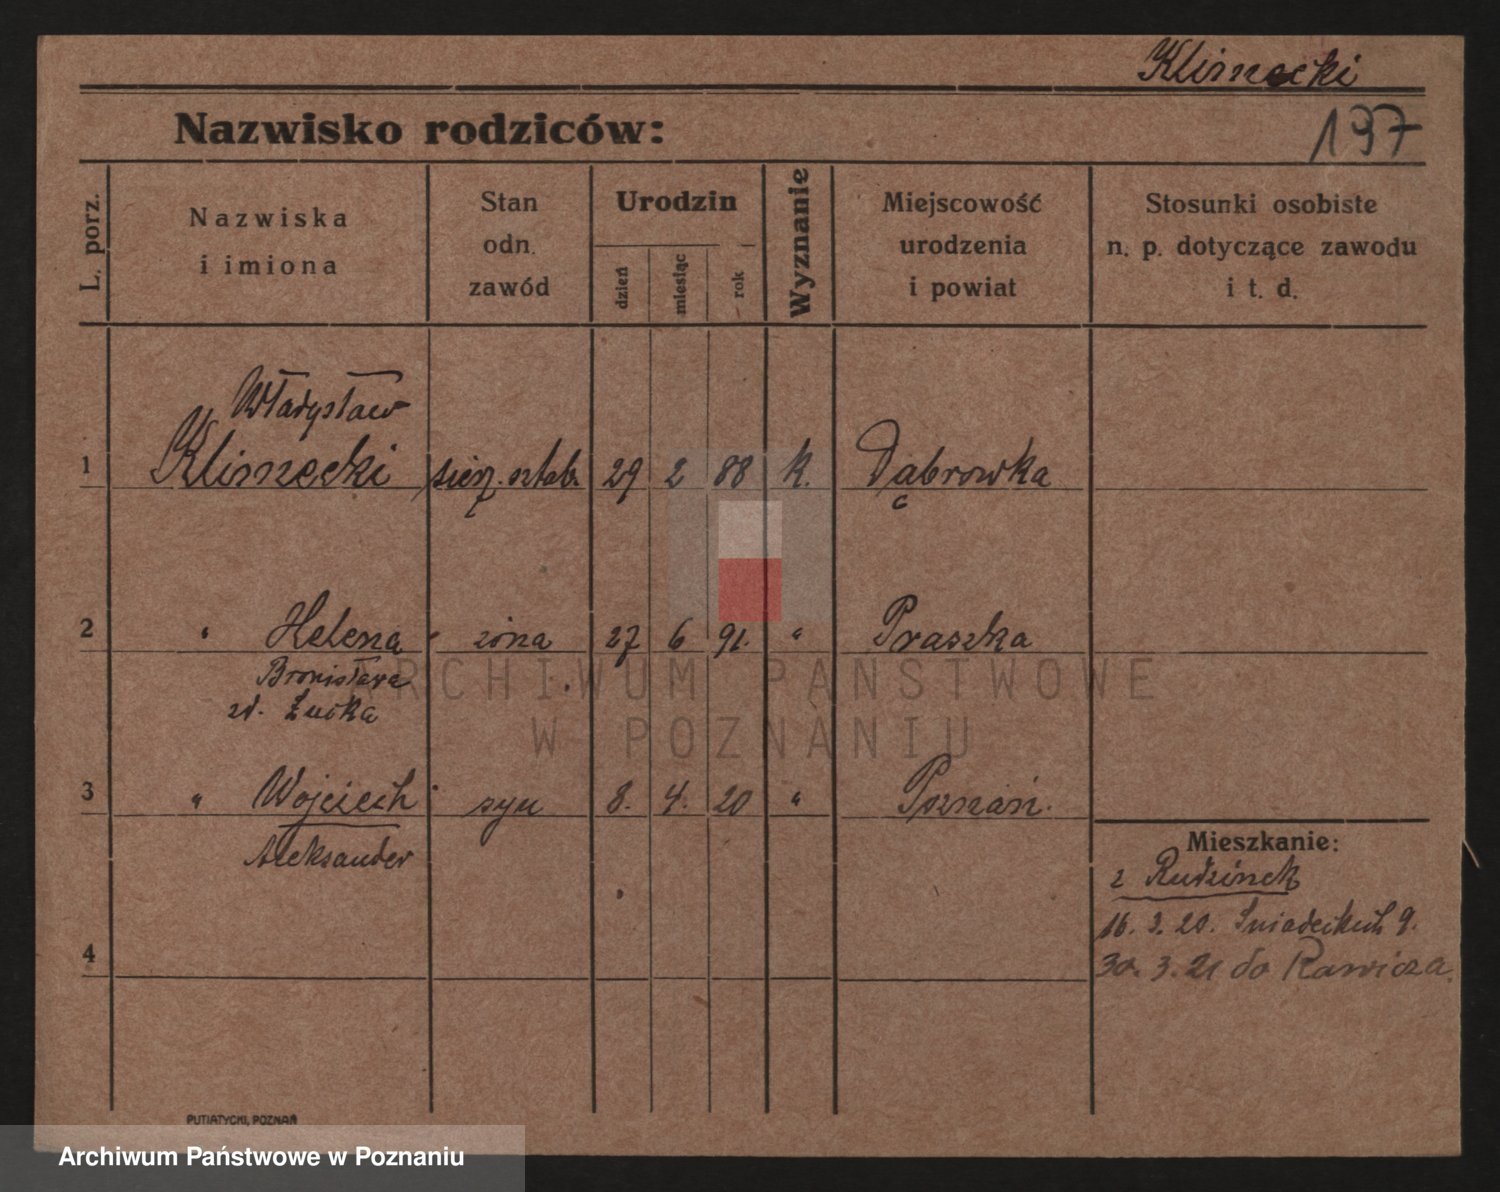 Klimecki
Nazwisko rodziców:
197
L. porz.
Nazwiska
i imiona
Stan
odn.
zawód
Urodzin
dzień
miesiąc
rok
Wyznanie
Miejscowość
urodzenia
i powiat
Stosunki osobiste
n. p. dotyczące zawodu
i t. d.
Władysław
1 Klimecki sierż. sztab. 29 2 88 k. Dąbrowka
2 " Helena żona 27 6 91. " Praszka
Bronisława
zd.
3 " Wojciech syn 8. 4. 20 " Poznań.
Aleksander
Mieszkanie:
z Rudzinek
16. 3. 20. Śniadeckich 9.
4
30. 3. 21 do Rawicza.
PUTIATYCKI, POZNAŃ
ARCHIWUM PAŃSTWOWE
W POZNANIU
Archiwum Państwowe w Poznaniu